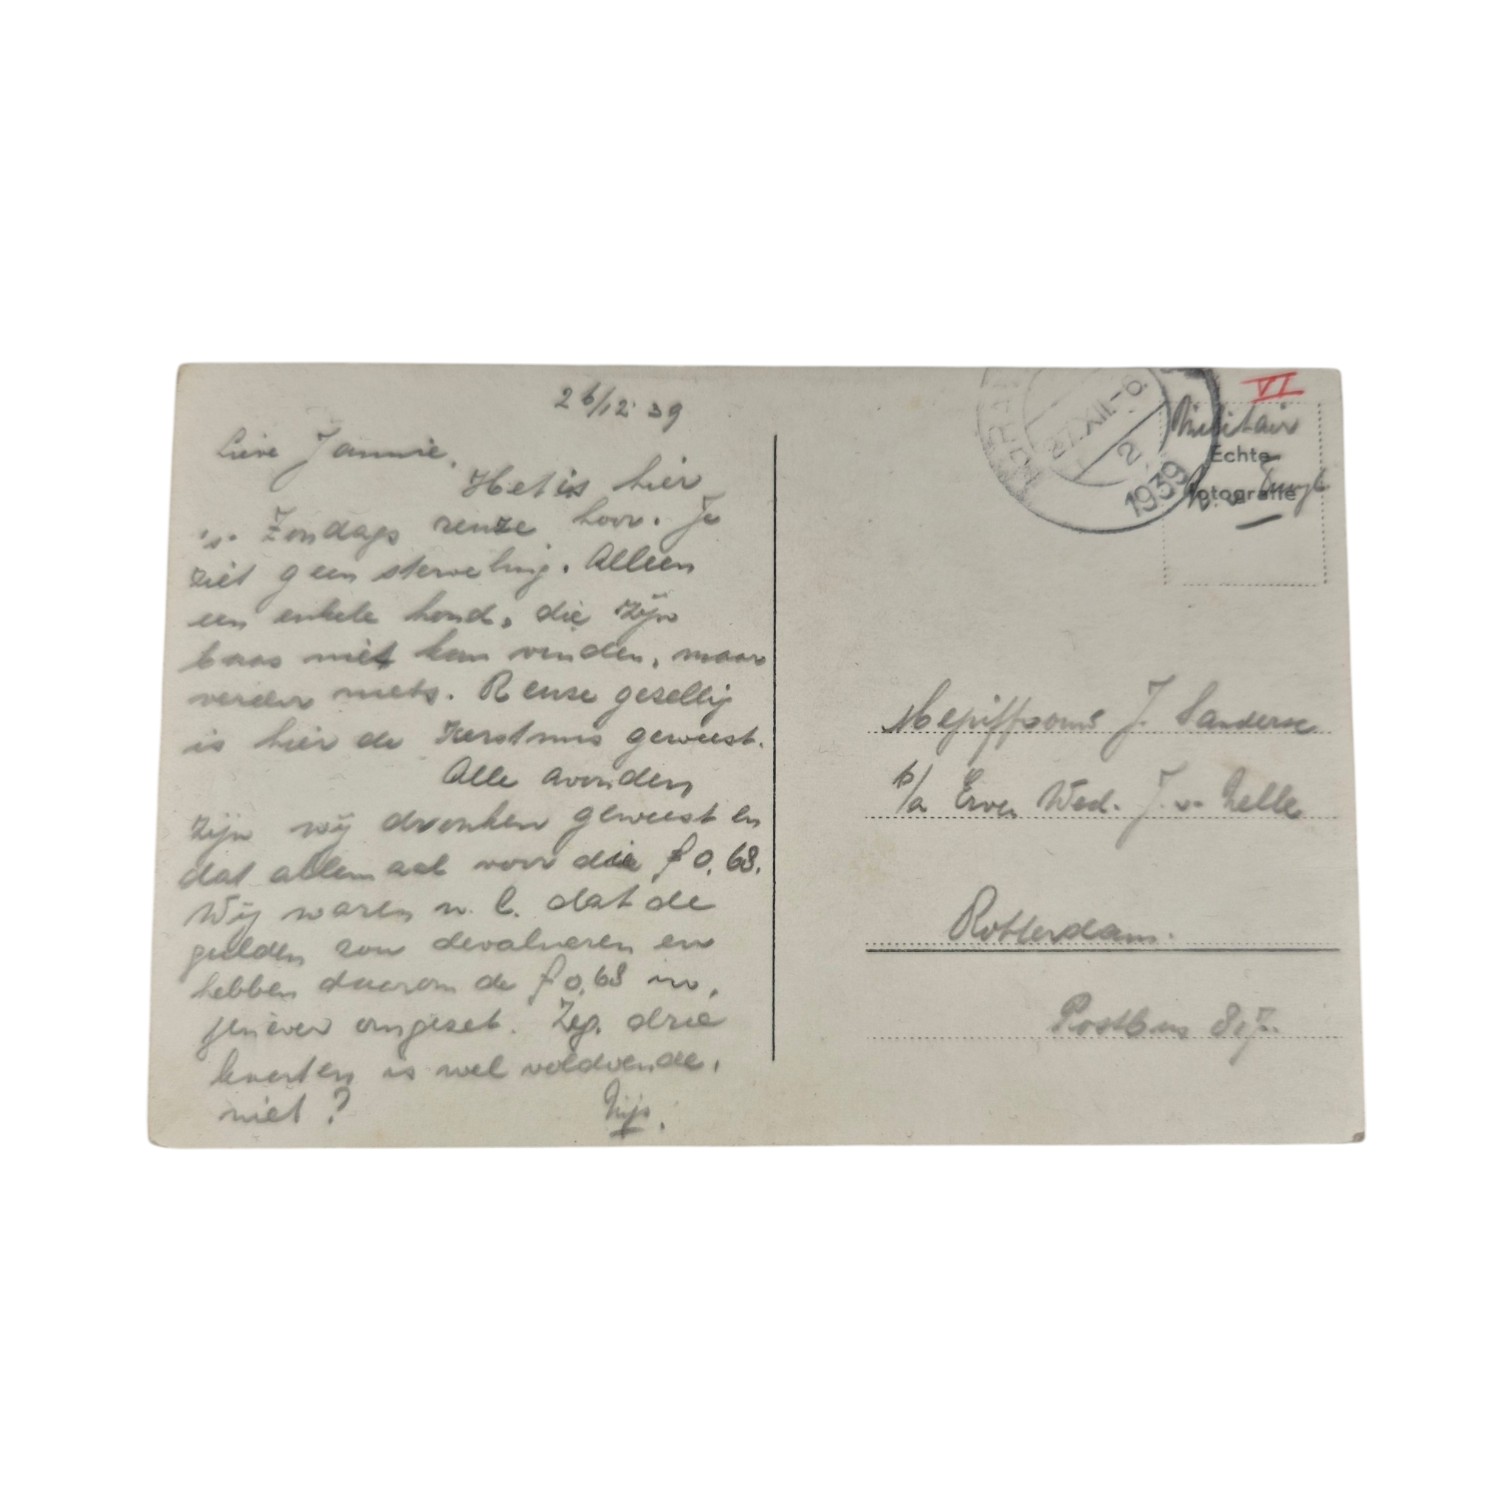 26/12 39
Lieve Jannie,
Het is hier
's. Zondags reuze hoor. Je
ziet geen sterveling. Alleen
een enkele hond, die zijn
baas niet kan vinden, maar
verder niets. Reuse gesellig
is hier de Kerstmis geweest.
Alle avonden
zijn wij dronken geweest en
dat allemaal voor die f 0,68.
Wij waren n. l. dat de
gulden zou devalueren en
hebben daarom de f 0,68 in,
jenever omgeset. Zeg, drie
kaarten is wel voldoende,
niet?
Thijs.
27.XII.-6
2
1939
VI
Militair
Echte
fotografie
Mejuffrouw J. Sanderse
p/a Erven Wed. J. v. Nelle
Rotterdam.
Postbus 817.